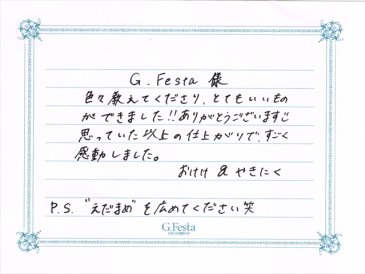 G.Festa 様
色々教えてくださり、とてもいいもの
ができました!!ありがとうございますご
思っていた以上の仕上がりで、すごく
感動しました。
おけけ & やきにく
P.S. "えだまめ"を広めてください笑
G.Festa